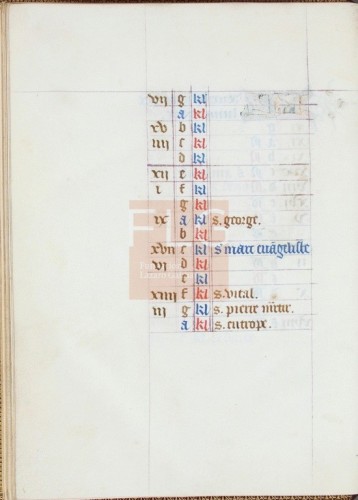 vii g kl
a kl
xv b kl
iiii c kl
d kl
xii e kl
i f kl
g kl
ix a kl s. george.
b kl
xvii c kl s marc euãgeliste
vi d kl
e kl
xiiii f kl s. vital.
iii g kl s. pierre m̃tir.
a kl s. eutrope.